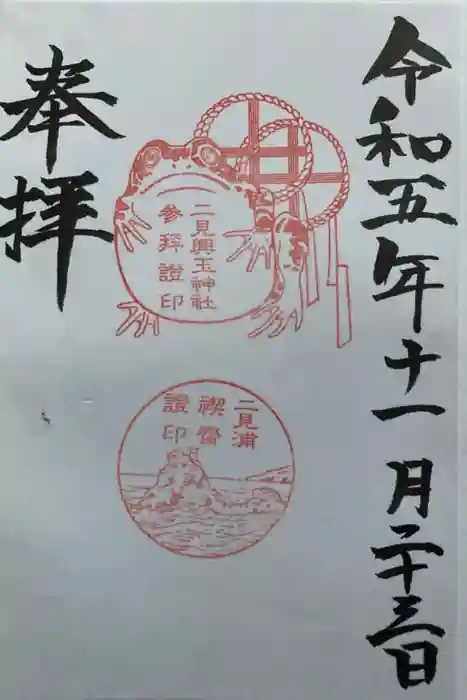 令和五年十一月二十三日
二見興玉神社
參拜證印
二見浦
禊齋
證印
奉拝